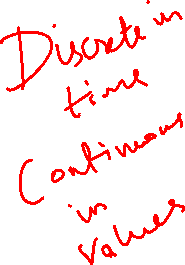 Discrete in
time
Continuous
in
values